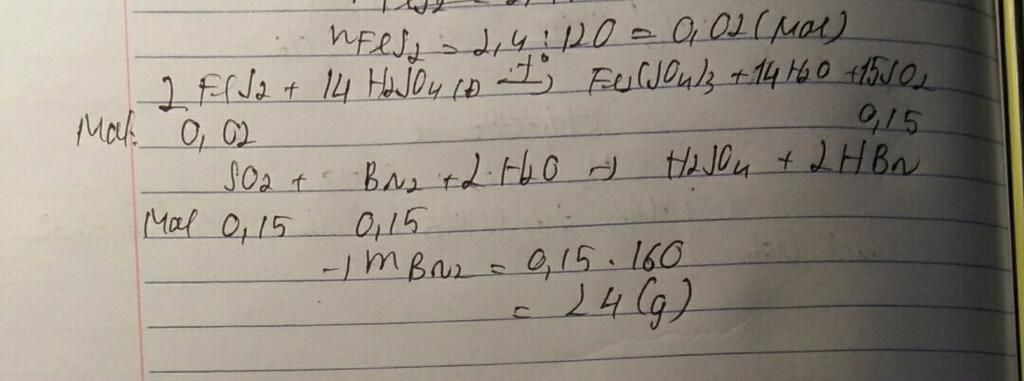 nFeS₂ = 2,4 : 120 = 0,02 (mol)
2 FeS₂ + 14 H₂SO₄ (đ) –t°→ Fe₂(SO₄)₃ + 14 H₂O + 15SO₂
Mol: 0,02 0,15
SO₂ + Br₂ + 2 H₂O → H₂SO₄ + 2 HBr
Mol 0,15 0,15
→ m Br₂ = 0,15 . 160
= 24 (g)